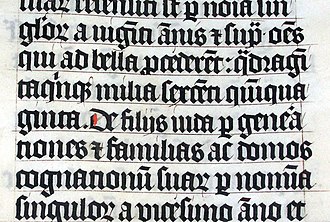 suar recensiti st p noīa sin
gulor a uiginti ānis ⁊ sup̄ · oēs
qui ad bella ꝓcederēt : qͣdragī
ta qīnqꝫ milia sexcēti quīqua
ginta. De filijs iuda ꝑ genera
tiones ⁊ familias ac domos
cognationū suaꝝ ꝑ nomīa
singuloꝝ a uicesimo āno et